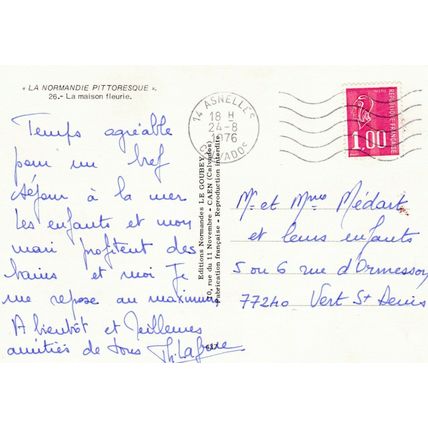 « LA NORMANDIE PITTORESQUE ».
26.- La maison fleurie.
Temps agréable
pour un bref
séjour à la mer
les enfants et mon
mari profitent des
bains et moi je
me repose au maximum
A bientôt et Meilleures
amitiés de tous
14 ASNELLES
18 H
24-8
1976
CALVADOS
REPUBLIQUE FRANCAISE
1.00
Editions Normandes LE GOUBEY
30, rue du 11 Novembre - CAEN (Calvados)
Fabrication française - Reproduction interdite
Mr et Mme Médart
et leurs enfants
5 ou 6 rue d'Ormesson
77240 Vert St Denis